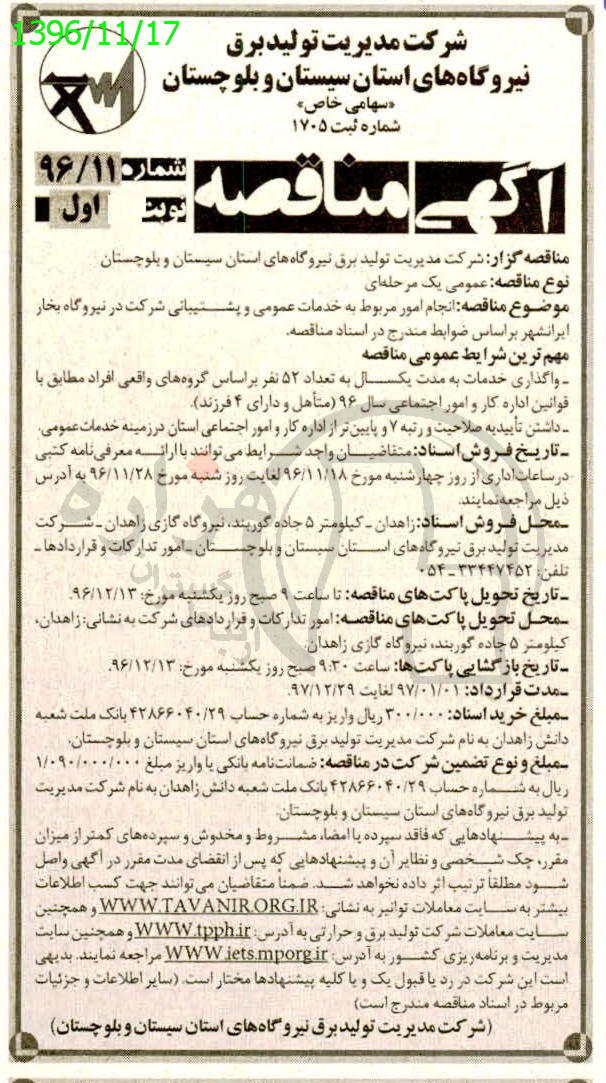 1396/11/17
شرکت مدیریت تولید برق
نیروگاه‌های استان سیستان و بلوچستان
«سهامی خاص»
شماره ثبت ۱۷۰۵
آگهی مناقصه
شماره ۹۶/۱۱
نوبت اول
مناقصه گزار: شرکت مدیریت تولید برق نیروگاه‌های استان سیستان و بلوچستان
نوع مناقصه: عمومی یک مرحله‌ای
موضوع مناقصه: انجام امور مربوط به خدمات عمومی و پشتیبانی شرکت در نیروگاه بخار
ایرانشهر براساس ضوابط مندرج در اسناد مناقصه.
مهم ترین شرایط عمومی مناقصه
ـ واگذاری خدمات به مدت یکسال به تعداد ۵۲ نفر براساس گروه‌های واقعی افراد مطابق با
قوانین اداره کار و امور اجتماعی سال ۹۶ (متأهل و دارای ۴ فرزند).
ـ داشتن تأییدیه صلاحیت و رتبه ۷ و پایین‌تر از اداره کار و امور اجتماعی استان درزمینه خدمات عمومی.
ـ تاریخ فروش اسناد: متقاضیان واجد شرایط می‌توانند با ارائه معرفی‌نامه کتبی
در ساعات اداری از روز چهارشنبه مورخ ۹۶/۱۱/۱۸ لغایت روز شنبه مورخ ۹۶/۱۱/۲۸ به آدرس
ذیل مراجعه نمایند.
ـ محل فروش اسناد: زاهدان ـ کیلومتر ۵ جاده گوربند، نیروگاه گازی زاهدان ـ شرکت
مدیریت تولید برق نیروگاه‌های استان سیستان و بلوچستان ـ امور تدارکات و قراردادها ـ
تلفن: ۳۳۴۴۷۴۵۲ ـ ۰۵۴
ـ تاریخ تحویل پاکت‌های مناقصه: تا ساعت ۹ صبح روز یکشنبه مورخ: ۹۶/۱۲/۱۳.
ـ محل تحویل پاکت‌های مناقصه: امور تدارکات و قراردادهای شرکت به نشانی: زاهدان،
کیلومتر ۵ جاده گوربند، نیروگاه گازی زاهدان.
ـ تاریخ بازگشایی پاکت‌ها: ساعت ۹:۳۰ صبح روز یکشنبه مورخ: ۹۶/۱۲/۱۳.
ـ مدت قرارداد: ۹۷/۰۱/۰۱ لغایت ۹۷/۱۲/۲۹.
ـ مبلغ خرید اسناد: ۳۰۰/۰۰۰ ریال واریز به شماره حساب ۴۲۸۶۶۰۴۰/۲۹ بانک ملت شعبه
دانش زاهدان به نام شرکت مدیریت تولید برق نیروگاه‌های استان سیستان و بلوچستان.
ـ مبلغ و نوع تضمین شرکت در مناقصه: ضمانت‌نامه بانکی یا واریز مبلغ ۱/۰۹۰/۰۰۰/۰۰۰
ریال به شماره حساب ۴۲۸۶۶۰۴۰/۲۹ بانک ملت شعبه دانش زاهدان به نام شرکت مدیریت
تولید برق نیروگاه‌های استان سیستان و بلوچستان.
ـ به پیشنهادهایی که فاقد سپرده یا امضا، مشروط و مخدوش و سپرده‌های کمتر از میزان
مقرر، چک شخصی و نظایر آن و پیشنهادهایی که پس از انقضای مدت مقرر در آگهی واصل
شود مطلقاً ترتیب اثر داده نخواهد شد. ضمناً متقاضیان می‌توانند جهت کسب اطلاعات
بیشتر به سایت معاملات توانیر به نشانی: WWW.TAVANIR.ORG.IR و همچنین
سایت معاملات شرکت تولید برق و حرارتی به آدرس: WWW.tpph.ir و همچنین سایت
مدیریت و برنامه‌ریزی کشور به آدرس: WWW.iets.mporg.ir مراجعه نمایند. بدیهی
است این شرکت در رد یا قبول یک و یا کلیه پیشنهادها مختار است. (سایر اطلاعات و جزئیات
مربوط در اسناد مناقصه مندرج است)
(شرکت مدیریت تولید برق نیروگاه‌های استان سیستان و بلوچستان)